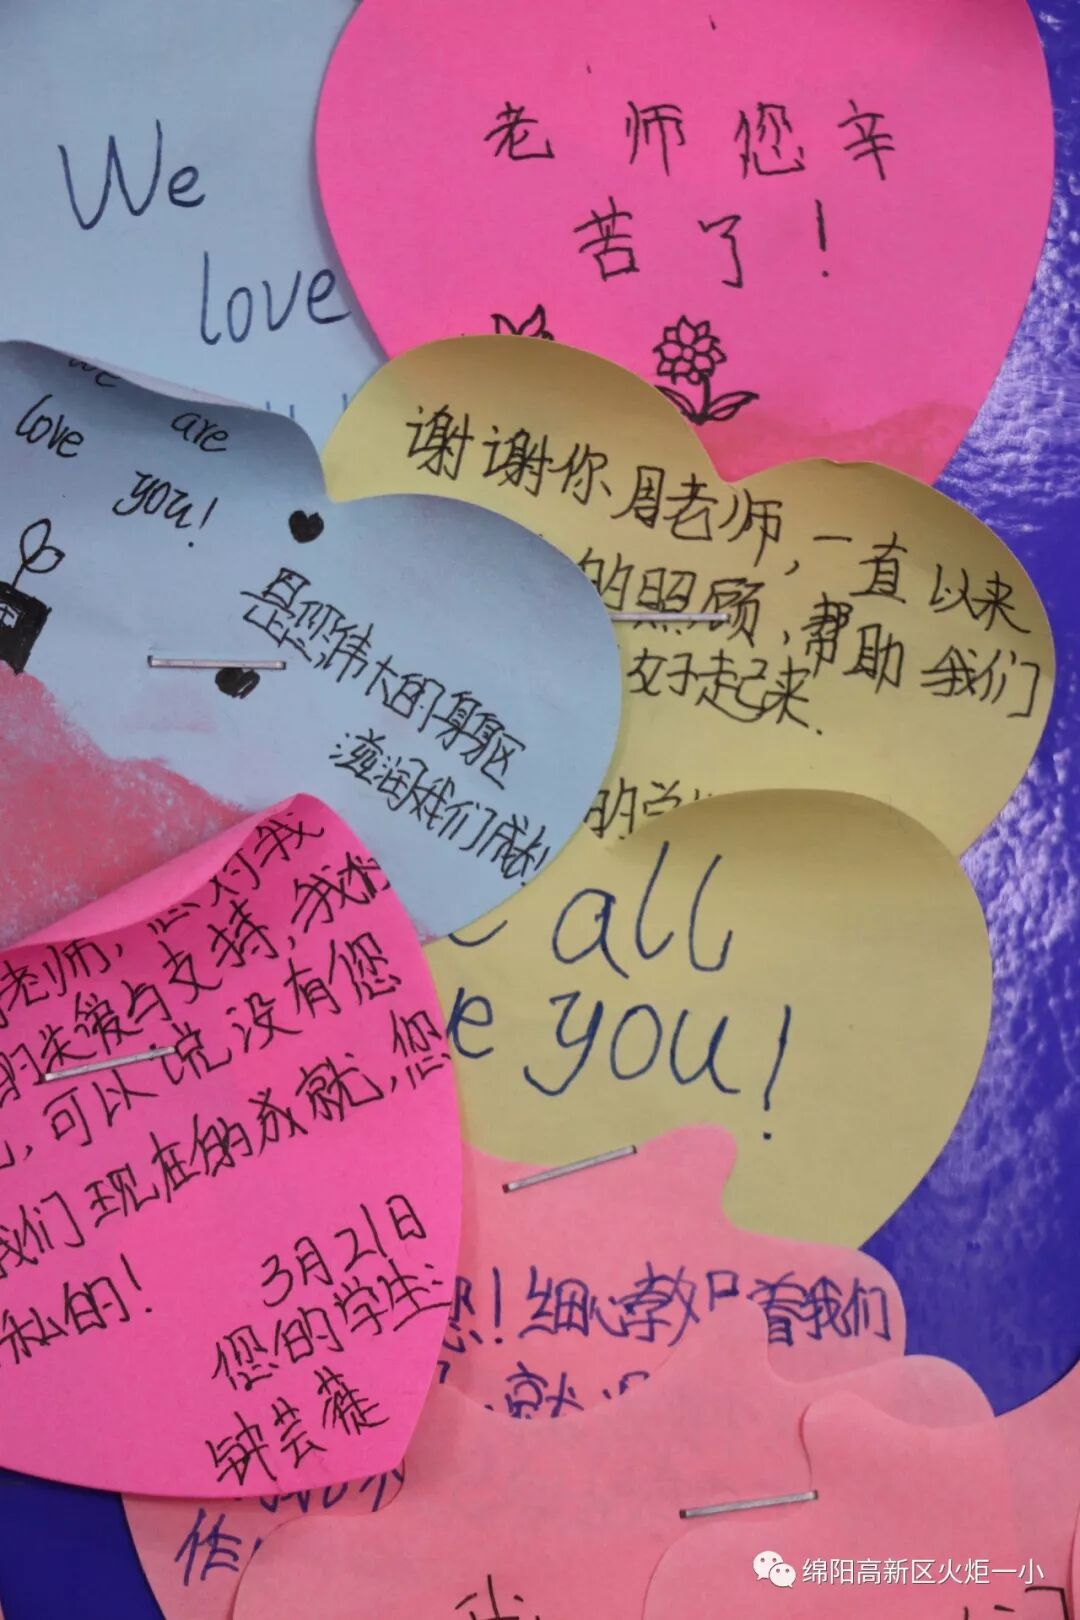 We
love
老师您辛
苦了！
are
love
you!
是您伟大的身躯
滋润我们成长!
谢谢你周老师，一直以来
的照顾，帮助我们
好起来.
的学
all
you!
老师，您对我
的关爱与支持，我们
，可以说没有您
我们现在的成就，您
私的！
3月21日
您的学生：
钟芸薇
您！细心教
着我们
就
作
绵阳高新区火炬一小